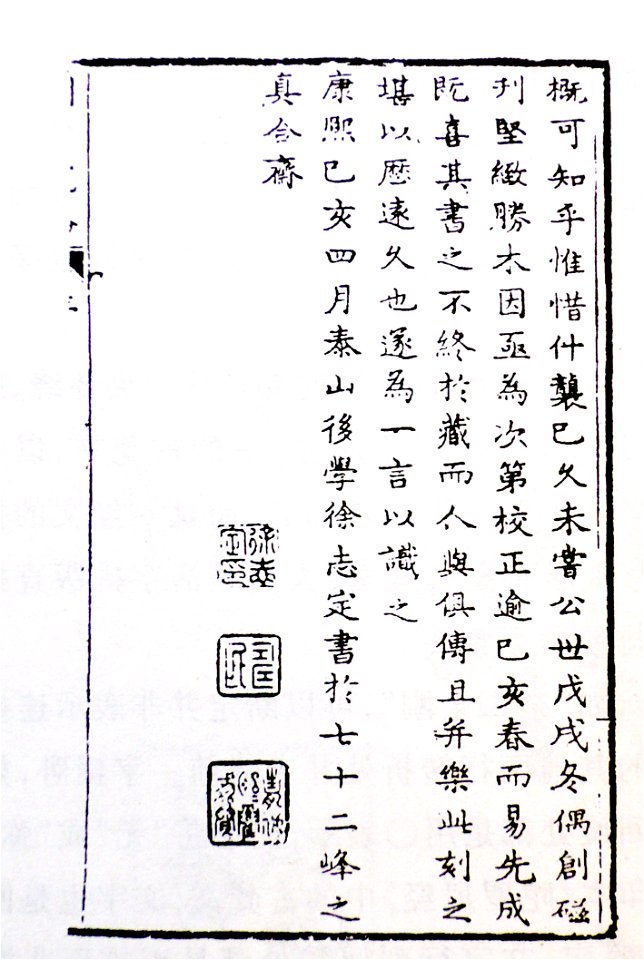 概可知乎惟惜什襲已久未嘗公世戊戌冬偶創磁
刋堅緻勝木因亟為次第校正逾己亥春而易先成
既喜其書之不終於藏而人與俱傳且并樂此刻之
堪以歷遠久也遂為一言以識之
康熙己亥四月泰山後學徐志定書於七十二峰之
真合齋